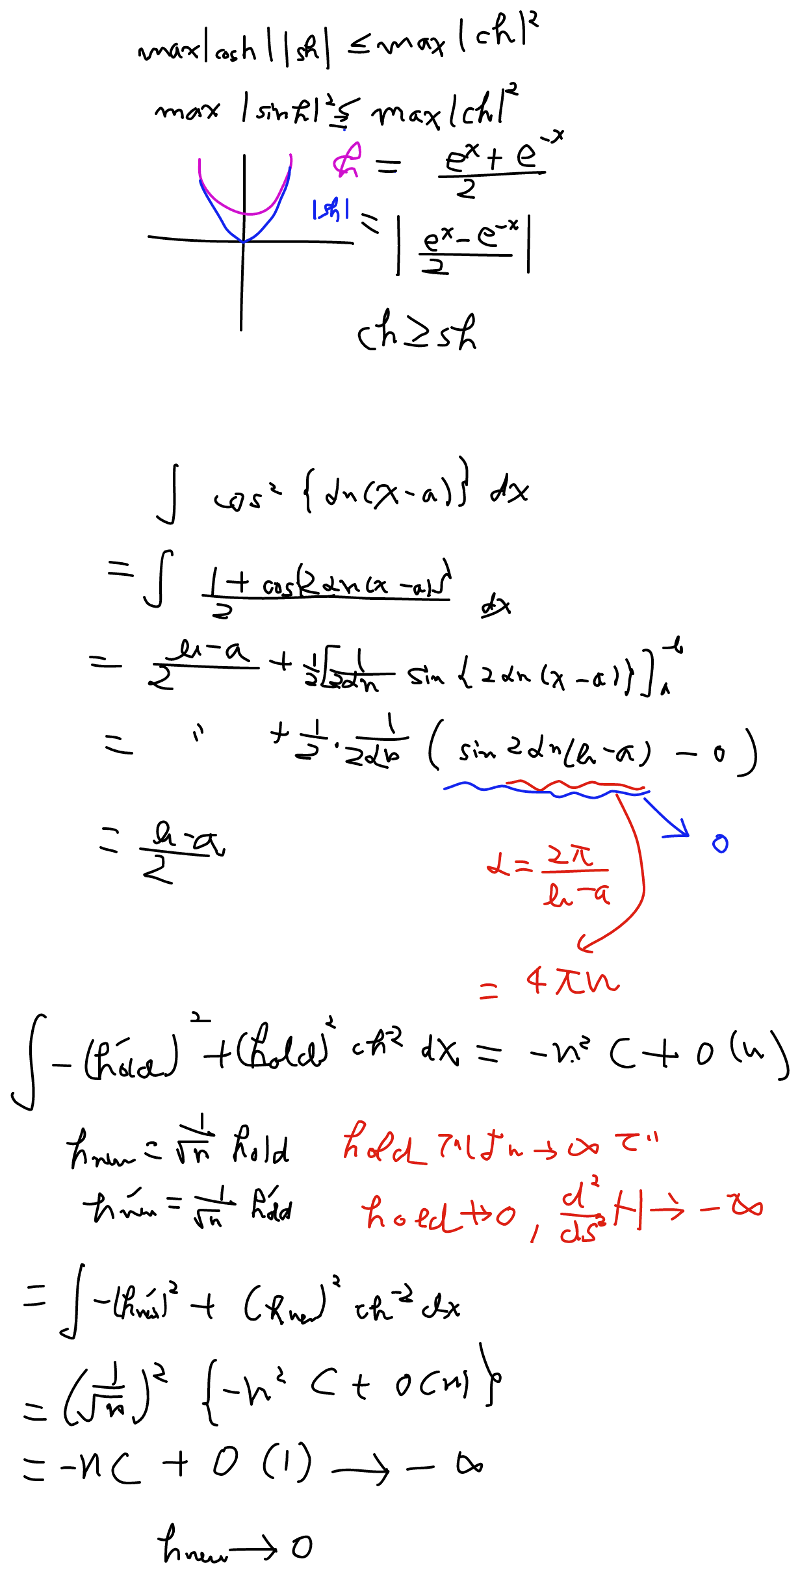 max|cosh||sh| ≤ max|ch|²
max |sinh|² ≤ max|ch|²
ch = (e^x + e^-x)/2
|sh| = |(e^x - e^-x)/2|
ch ≥ sh
∫ cos² {αn(x-a)} dx
= ∫ (1 + cos{2αn(x-a)})/2 dx
= (b-a)/2 + 1/2 [1/(2αn) sin {2αn(x-a)}]_a^b
= 〃 + 1/2 · 1/(2αn) (sin 2αn(b-a) - 0)
= (b-a)/2
0
α = 2π/(b-a)
= 4πn
∫ -(h'old)² + (hold)² ch⁻² dx = -n² C + O(n)
hnew = 1/√n hold
hold では n → ∞ で
h'new = 1/√n h'old
hold ↛ 0, d²/ds² H → -∞
= ∫ -(h'new)² + (hnew)² ch⁻² dx
= (1/√n)² {-n² C + O(n)}
= -nC + O(1) → -∞
hnew → 0